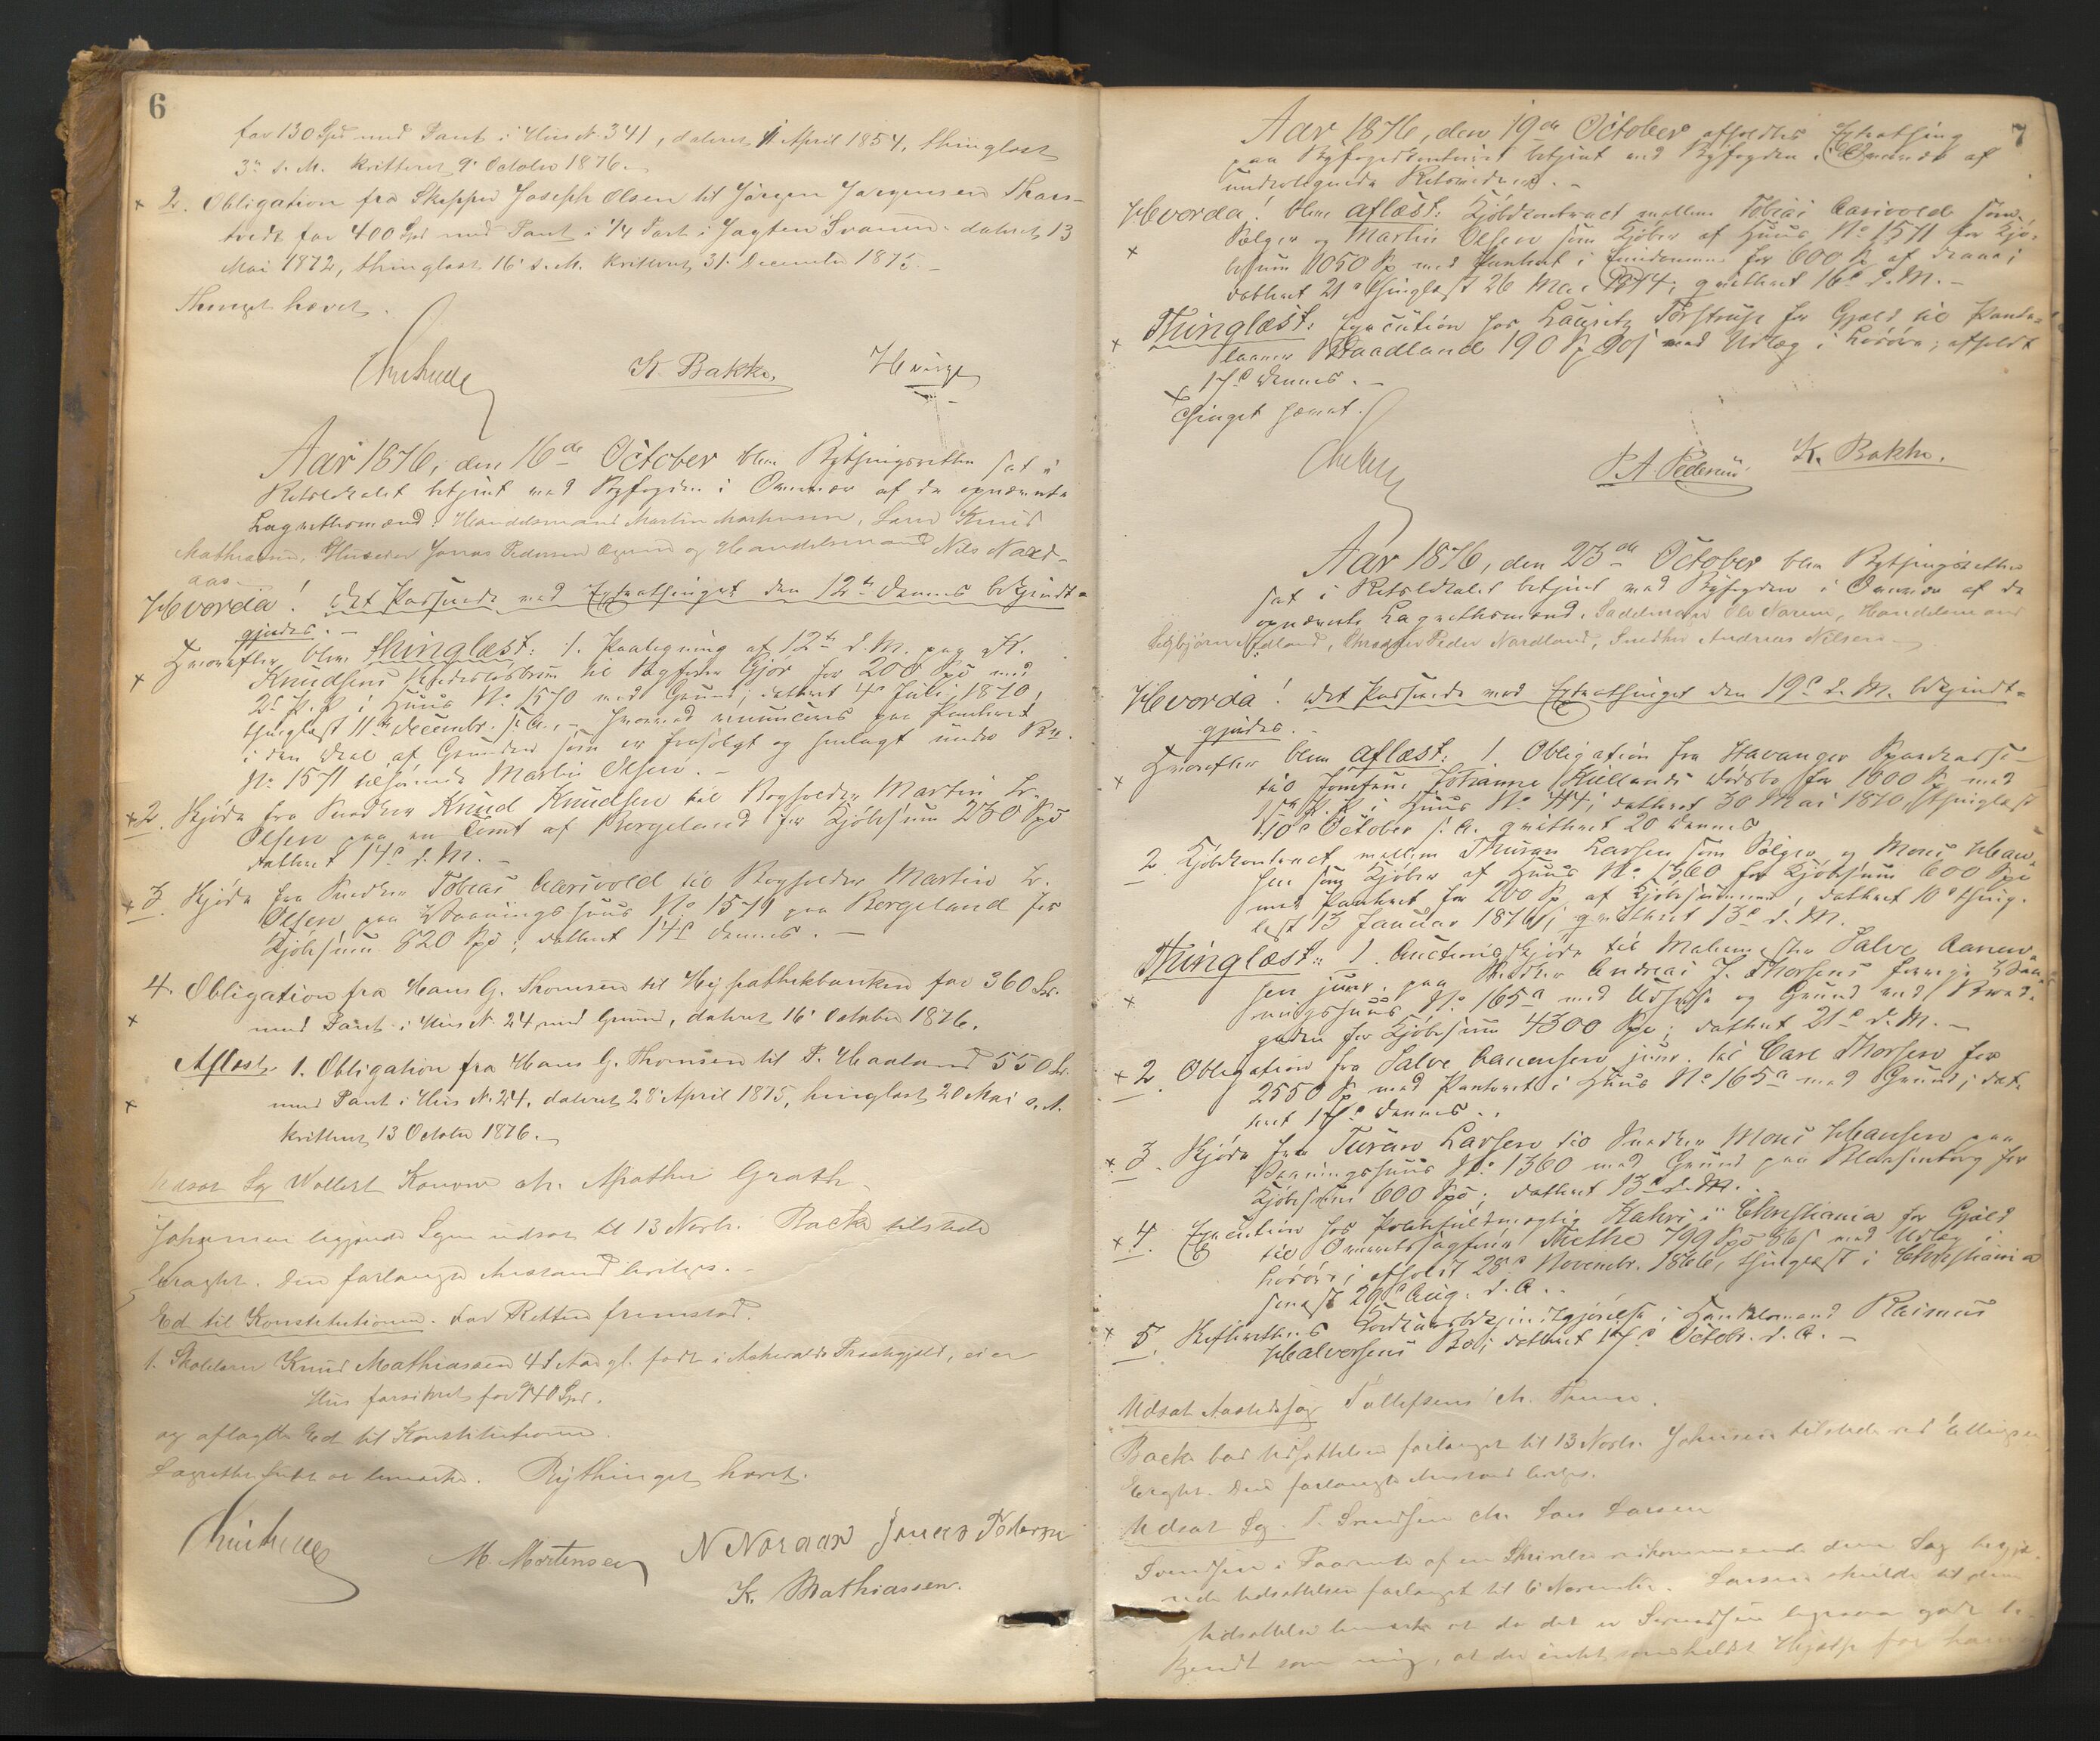 6
for 130 Spd med Pant i Hus N. 341, dateret 11 April 1854, thinglæst
3' s. M. kvitteret 9' October 1876.
2. Obligation fra Skipper Joseph Olsen til Jørgen Jørgensen Thars-
tvedt for 400 Spd med Pant i 1/4 Part i Jagten Svanen dateret 13
Mai 1872, thinglæst 16' s. M. kvitteret 31' December 1875
Thinget hævet.
K. Bakke.
Aar 1876, den 16de October blev Bythingsretten sat i
Retslokalet betjent med Byfogden i Overvær af de opnævnte
Lagrettesmænd: Handelsmand Martin Mortensen, Lærer Knud
Mathiassen, Huseier Jonas Pedersen og Handelsmand Nils Nord-
aas.
Hvorda! det Passerede ved Extrathinget den 12te dennes bekjendt-
gjordes.
Hvorefter blev thinglæst: 1. Paategning af 12te d. M. paa K.
Knudsens til Gjør for 200 Spd med
2' P. P. i Huus No 1570 med Grund; datteret 4' Juli 1870,
thinglæst 11te Decembr. s. A., hvorved renunceres paa Panteret
i den Deel af Grunden som er frasolgt og henlagt under
No 1571 tilhørende Martin Olsen.
2. Skjøde fra Snedker Knud Knudsen til Bogholder Martin L.
Olsen paa en Tomt af Bergeland for Kjøbesum 230 Spd
datteret 14' d. M.
3. Skjøde fra Snedker Tobias Aarsvold til Bogholder Martin L.
Olsen paa Vaaningshuus No 1571 paa Bergeland for
Kjøbesum 820 Spd; datteret 14' dennes.
4. Obligation fra Hans G. Thomsen til Hypothekbanken for 360 Spd.
med Pant i Hus N. 24 med Grund, dateret 16' October 1876.
Aflæst. 1. Obligation fra Hans G. Thomsen til P. Haaland 550
med Pant i Hus N. 24, dateret 28' April 1875, thinglæst 20 Mai s. A.
kvitteret 13 October 1876.
Udsat Sag Wollert Konow ctr. Mathis Grath
Johnsen begjærede Sagen udsat til 13 Novbr. Backe tilstede
Eragtet. Den forlangte Anstand bevilges.
Ed til Konstitutionen. For Retten fremstod.
1. Skolelærer Knud Mathiassen 41 Aar gl. født i Præstegjeld, eier
Hus forsikret for 940 Spd.
og aflagde Ed til Konstitutionen.
Lagretten Intet at bemærke. Bythinget hævet.
M. Mortensen N Noraas Jonas Pedersen
K. Mathiassen.
7
Aar 1876, den 19de October afholdtes Extrathing
paa Byfogedkontoret betjent med Byfogden i Overvær af
undertegnede Retsvidner.
Hvorda! blev aflæst: Kjøbekontract mellem Tobias Aarsvold som
Sælger og Martin Olsen som Kjøber af Huus No 1571 for Kjø-
besum 1050 Sp med Panteret i Eiendommen for 600 Sp af denne;
datteret 21' thinglæst 26 Mai 1874; qvitteret 16' d. M.
Thinglæst: Execution hos Lauritz Torstrup for Gjæld til Pante-
laaner Braadland 190 Sp 90 s med Udlæg i Løsøre; afholdt
17' dennes.
Thinget hævet.
P. A. Pedersen K. Bakke.
Aar 1876, den 23de October blev Bythingsretten
sat i Retslokalet betjent med Byfogden i Overvær af de
opnævnte Lagrettesmænd: Sadelmager Ole Narem, Handelsmand
Asbjørn Nedland, Peder Nordland, Snedker Andreas Nilsen
Hvorda! det Passerede ved Extrathinget den 19' d. M. bekjendt-
gjordes.
Hvorefter blev aflæst: 1. Obligation fra Stavanger Sparekasse
til Jomfru Johanne Kiellands Dødsbo for 1000 Sp med
1ste P. P. i Huus No 44; datteret 30 Mai 1870, thinglæst
10' October s. A. qvitteret 20 dennes
2. Kjøbekontract mellem Thuran Larsen som Sælger og Mons Han-
sen som Kjøber af Huus No 1360 for Kjøbesum 600 Spd
med Panteret for 200 Sp af Kjøbesummen, datteret 10' thing-
læst 13 Januar 1876; qvitteret 13' d. M.
Thinglæst: 1. Auctionsskjøde til Malermester Salve Aanen-
sen junr. paa Snedker Andreas J. Thorsens forrige Vaa-
ningshuus No 165a med Udhuse og Grund ved Bred-
gaden for Kjøbesum 4300 Spd; datteret 21' d. M.
2. Obligation fra Salve Aanensen junr. til Carl Thorsen for
2550 Sp med Panteret i Huus No 165a med Grund; dat-
teret 17' dennes.
3. Skjøde fra Turan Larsen til Snedker Mons Hansen paa
Vaaningshuus No 1360 med Grund paa Blaasenborg for
Kjøbesum 600 Spd; datteret 13' d. M.
4. Execution hos Politifuldmægtig i Christiania for Gjæld
til Overretssagfører Methe 799 Spd 86 s med Udlæg i
Løsøre; afholdt 28' Novembr. 1866, thinglæst i Christiania
senest 29' Aug. d. A.
5. Skifterettens Konkursbekjendtgjørelse i Handelsmand Rasmus
Halvorsens Bo; datteret 17' Octobr. d. A.
Udsat Aastedssag Tollefsens ctr. Tunem.
Backe bad Udsættelsen forlænget til 13 Novbr. Johnsen tilstede ved Ellingsen
Eragtet. Den forlangte Anstand bevilges.
Udsat Sag. T. Svendsen ctr. Lars Larsen
Svendsen i Paavente af en Skrivelse vedkommende denne Sag begjæ-
rede Udsættelsen forlænget til 6 November. Larsen skulde til denne
Udsættelse bemærke at da det er Svendsen ligesaa godt be-
kjendt som mig, at der intet Hjælp for ham